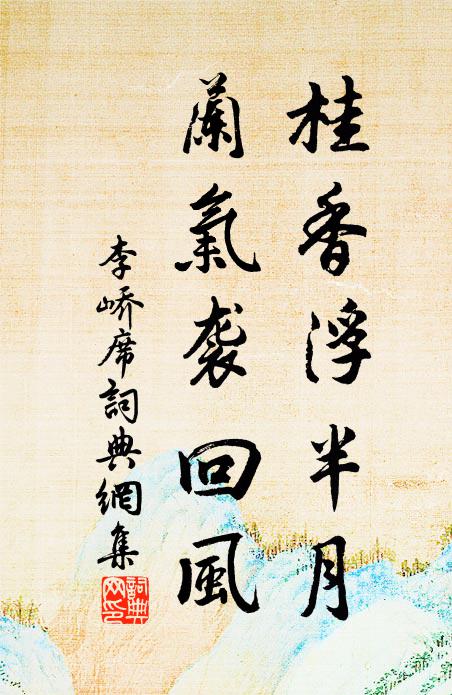 桂香浮半月
蘭氣袭回風
李峤席詞典網集
詞典網印